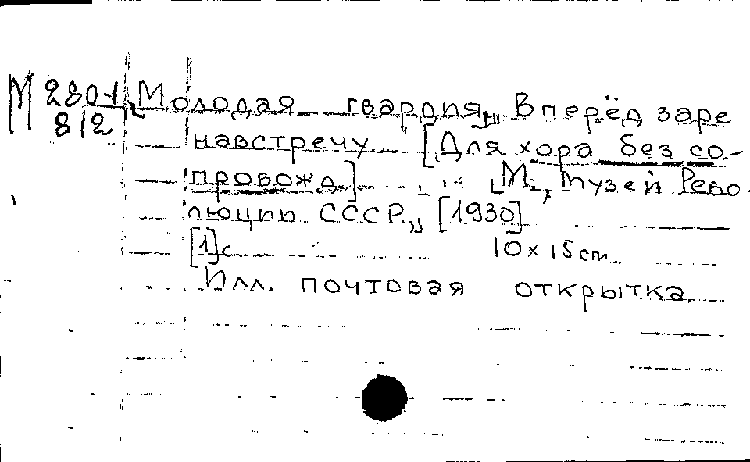 М 280-1 „Молодая гвардия„ Вперёд заре
8/2 навстречу [Для хора без со-
провожд] „М., Музей Рево-
люции СССР„ [1930]
[1]с 10 x 15 cm
Илл. почтовая открытка